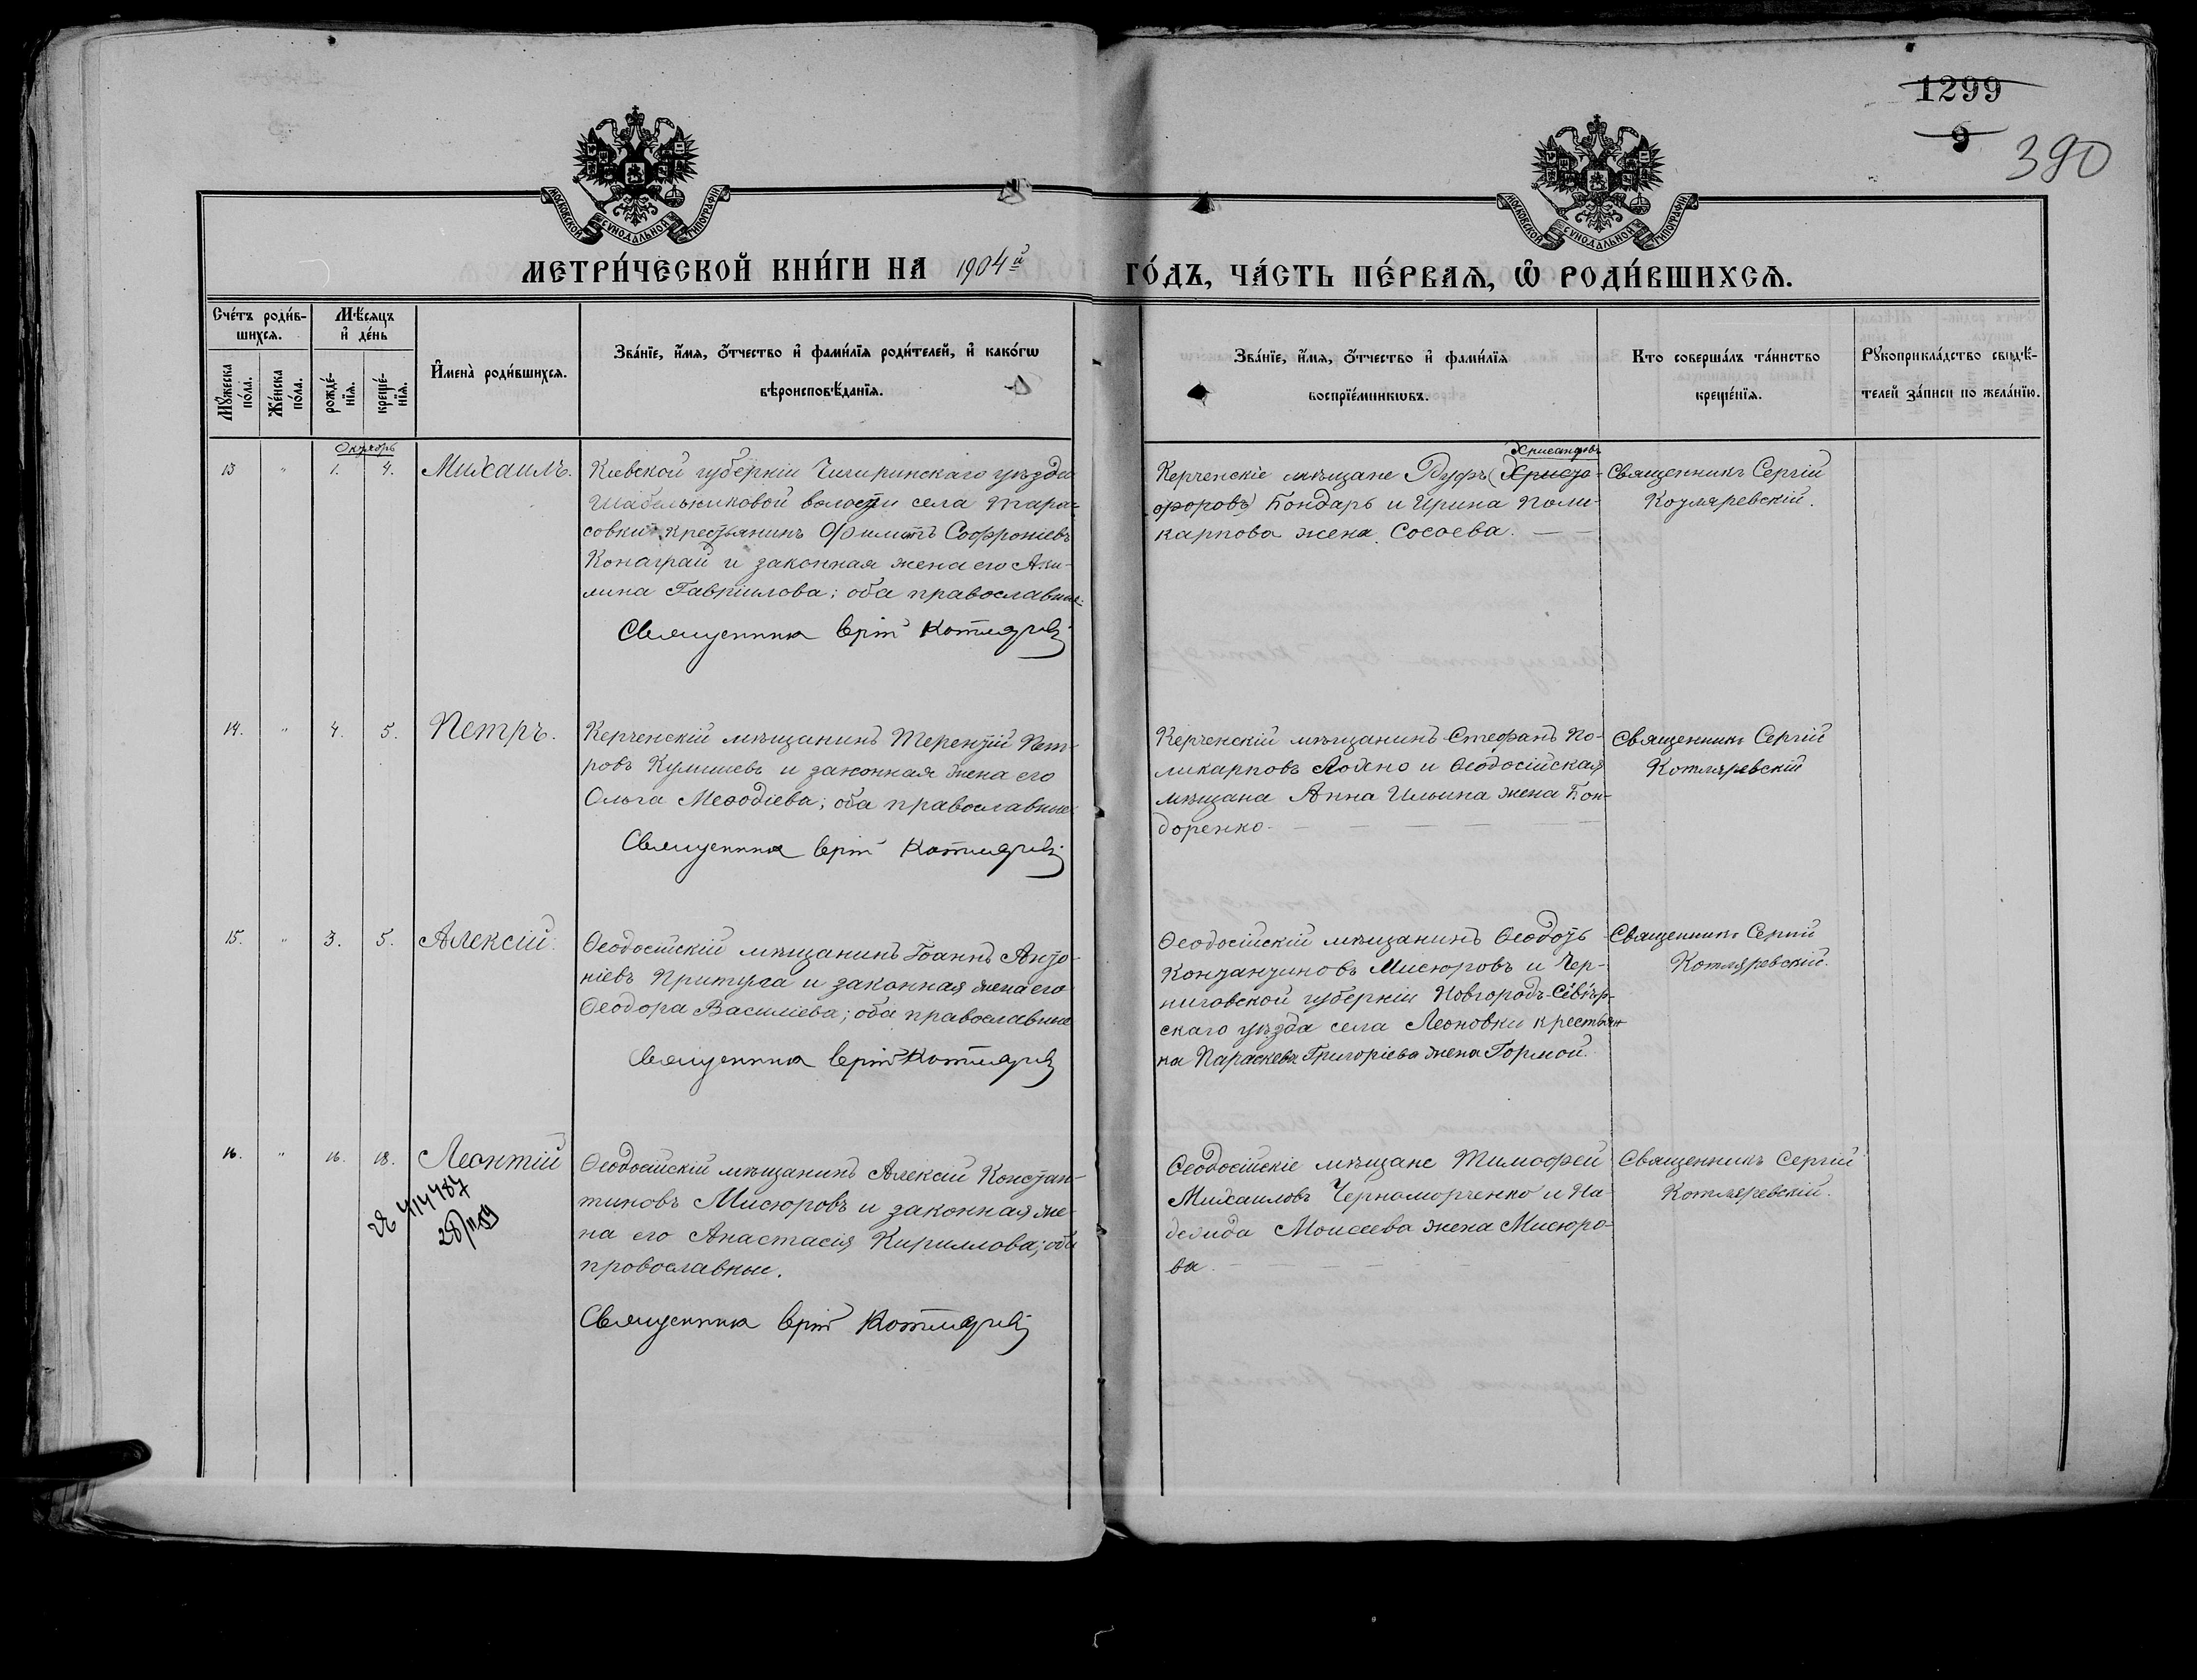 1299
9
390
МОСКОВСКОЙ СѴНОДАЛЬНОЙ ТИПОГРАФІИ
МОСКОВСКОЙ СѴНОДАЛЬНОЙ ТИПОГРАФІИ
МЕТРИ́ЧЕСКОЙ КНИ́ГИ НА 1904й ГО́ДЪ, ЧА́СТЬ ПЕ́РВАѦ, Ѡ҆ РОДИ́ВШИХСѦ.
Сче́тъ роди́в-
шихсѧ.
Мꙋ́жеска по́ла.
Же́нска по́ла.
Мѣ́сѧцъ
и҆ де́нь
рожде́-
нїѧ.
креще́-
нїѧ.
И҆мена̀ роди́вшихсѧ.
Зва́нїе, и҆́мѧ, ѻ҆́тчество и҆ фами́лїѧ роди́телей, и҆ како́гѡ
вѣроисповѣ́данїѧ.
Зва́нїе, и҆́мѧ, ѻ҆́тчество и҆ фами́лїѧ
воспрїе́мникѡвъ.
Кто соверша́лъ та́инство
креще́нїѧ.
Рꙋкоприкла́дство свидѣ́-
телей за́писи по жела́нїю.
Октябрь
13 " 1. 4. Михаилъ.
Кіевской губерніи Чигиринскаго уѣзда
Шабельниковой волости села Тара-
совки крестьянинъ Филиппъ Софроніевъ
законная жена его Аки-
лина Гавріилова; оба православные.
Священникъ Сергій Котляревскій
Керченскіе мѣщане Руфъ (Христо-
Хрисанфовъ
форовъ) Бондарь и Ирина Поли-
карпова жена Сосоева.
Священникъ Сергій
Котляревскій.
14. " 4. 5. Петръ.
Керченскій мѣщанинъ Терентій Пет-
ровъ Кулишевъ и законная жена его
Ольга Меѳодіева; оба православные.
Священникъ Сергій Котляревскій
Керченскій мѣщанинъ Стефанъ По-
ликарповъ и Ѳеодосійская
мѣщанка Анна Ильина жена Бон-
доренко.
Священникъ Сергій
Котляревскій
15. " 3. 5. Алексій.
Ѳеодосійскій мѣщанинъ Іоаннъ Анто-
ніевъ Притула и законная жена его
Ѳеодора Василіева; оба православные
Священникъ Сергій Котляревскій
Ѳеодосійскій мѣщанинъ Ѳеодотъ
Константиновъ Мисюровъ и Чер-
ниговской губерніи Новгородъ-Сѣвѣр-
скаго уѣзда села Леоновки крестьян-
ка Параскева Григоріева жена Гормой.
Священникъ Сергій
Котляревскій.
16. " 16. 18. Леонтій
28/II 59
Ѳеодосійскій мѣщанинъ Алексій Констан-
тиновъ Мисюровъ и законная же-
на его Анастасія Кириллова; оба
провославные.
Священникъ Сергій Котляревскій
Ѳеодосійскіе мѣщане Тимофей
Михаиловъ Черноморченко и На-
дежда Моисеева жена Мисюро-
ва.
Священникъ Сергій
Котляревскій.